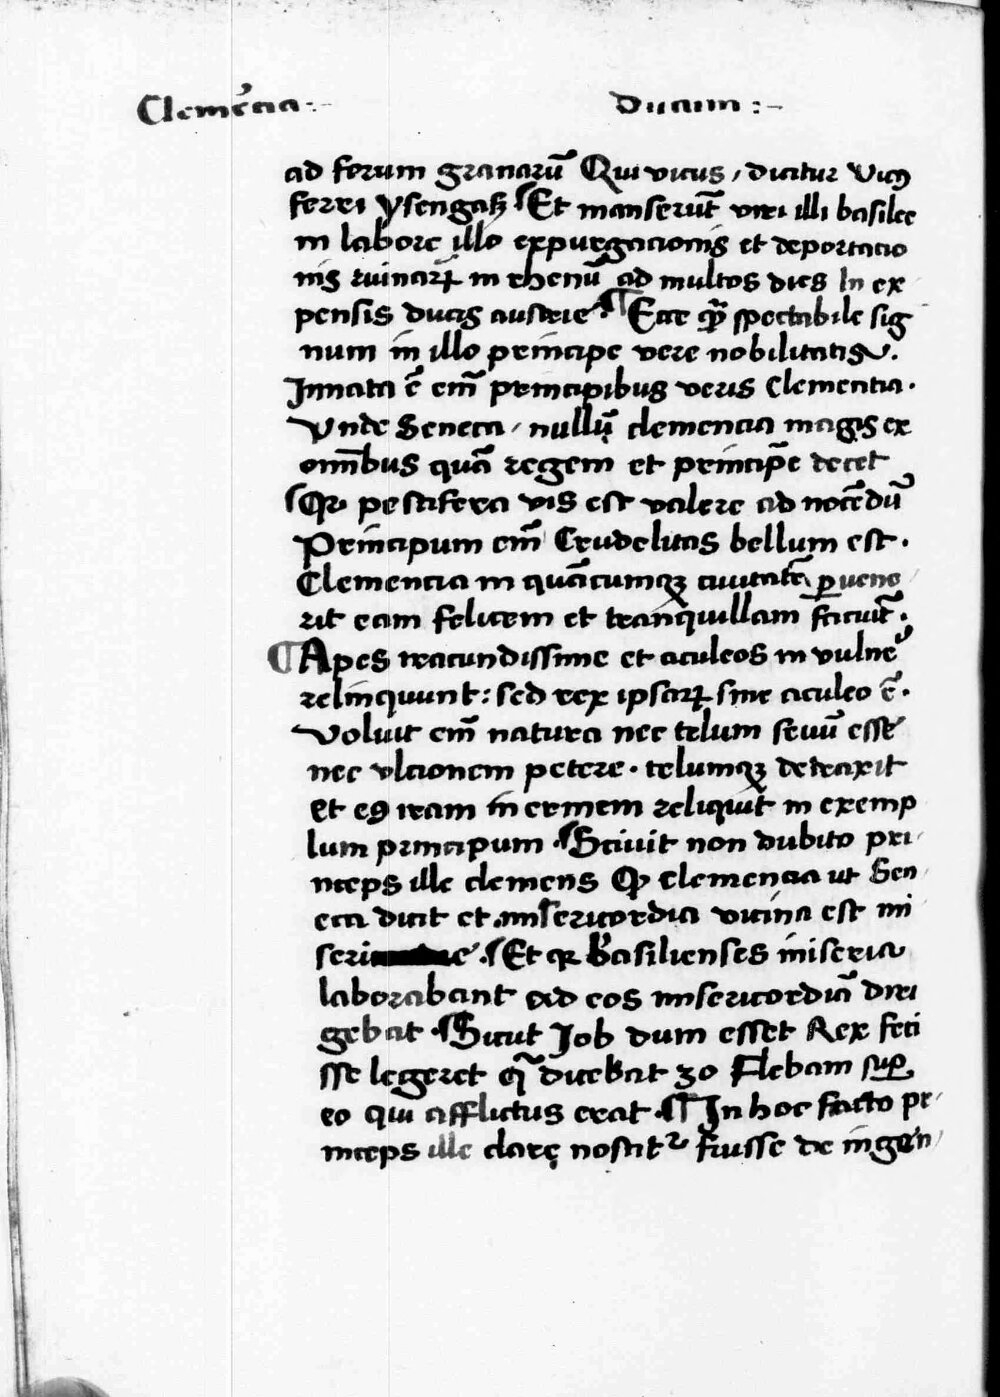 Clemēcia :-
Ducum :-
ad forum granarū Qui vicus, dicitur vicꝰ
ferri ysengaß Et manserūt viri illi basilee
in labore illo expurgacionis et deportacio
nis ruinarꝝ in rhenū ad multos dies In ex
pensis ducis austrie . ¶ Ecce qᷓ spectabile sig
num in illo principe vere nobilitatis.
Innata ē em̄ principibus veris Clementia.
Vnde Seneca, nullū clemencia magis ex
om̄ibus quā regem et principē decet
Qꝛ pestifera vis est valere ad nocēdū
Principum em̄ Crudelitas bellum est.
Clemencia in quācumqꝫ ciuitatē ꝑuene
rit eam felicem et tranquillam faciūt.
¶ Apes iracundissime et aculeos in vulne
relinquunt: sed rex ipsarꝝ sine aculeo ē.
Voluit em̄ natura nec telum seuū esse
nec vlcionem petere. telumqꝫ detraxit
et eꝰ iram in ermem reliquit in exemp
lum principum. Sciuit non dubito pri
nceps ille clemens qꝫ clemencia ut Sen
eca dicit et misericordia vicina est mi
serie. Et qꝛ Basilienses miseria
laborabant ad eos misericordiā diri
gebat. Sicut Job dum esset Rex feci
sse legeret qᷓ dicebat 30 Flebam suꝑ
eo qui afflictus erat. ¶ In hoc facto pr
inceps ille clarę noscitᷣ fuisse de ingen